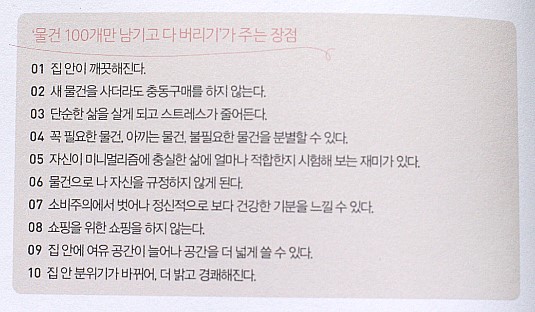 '물건 100개만 남기고 다 버리기'가 주는 장점
01 집 안이 깨끗해진다.
02 새 물건을 사더라도 충동구매를 하지 않는다.
03 단순한 삶을 살게 되고 스트레스가 줄어든다.
04 꼭 필요한 물건, 아끼는 물건, 불필요한 물건을 분별할 수 있다.
05 자신이 미니멀리즘에 충실한 삶에 얼마나 적합한지 시험해 보는 재미가 있다.
06 물건으로 나 자신을 규정하지 않게 된다.
07 소비주의에서 벗어나 정신적으로 보다 건강한 기분을 느낄 수 있다.
08 쇼핑을 위한 쇼핑을 하지 않는다.
09 집 안에 여유 공간이 늘어나 공간을 더 넓게 쓸 수 있다.
10 집 안 분위기가 바뀌어, 더 밝고 경쾌해진다.